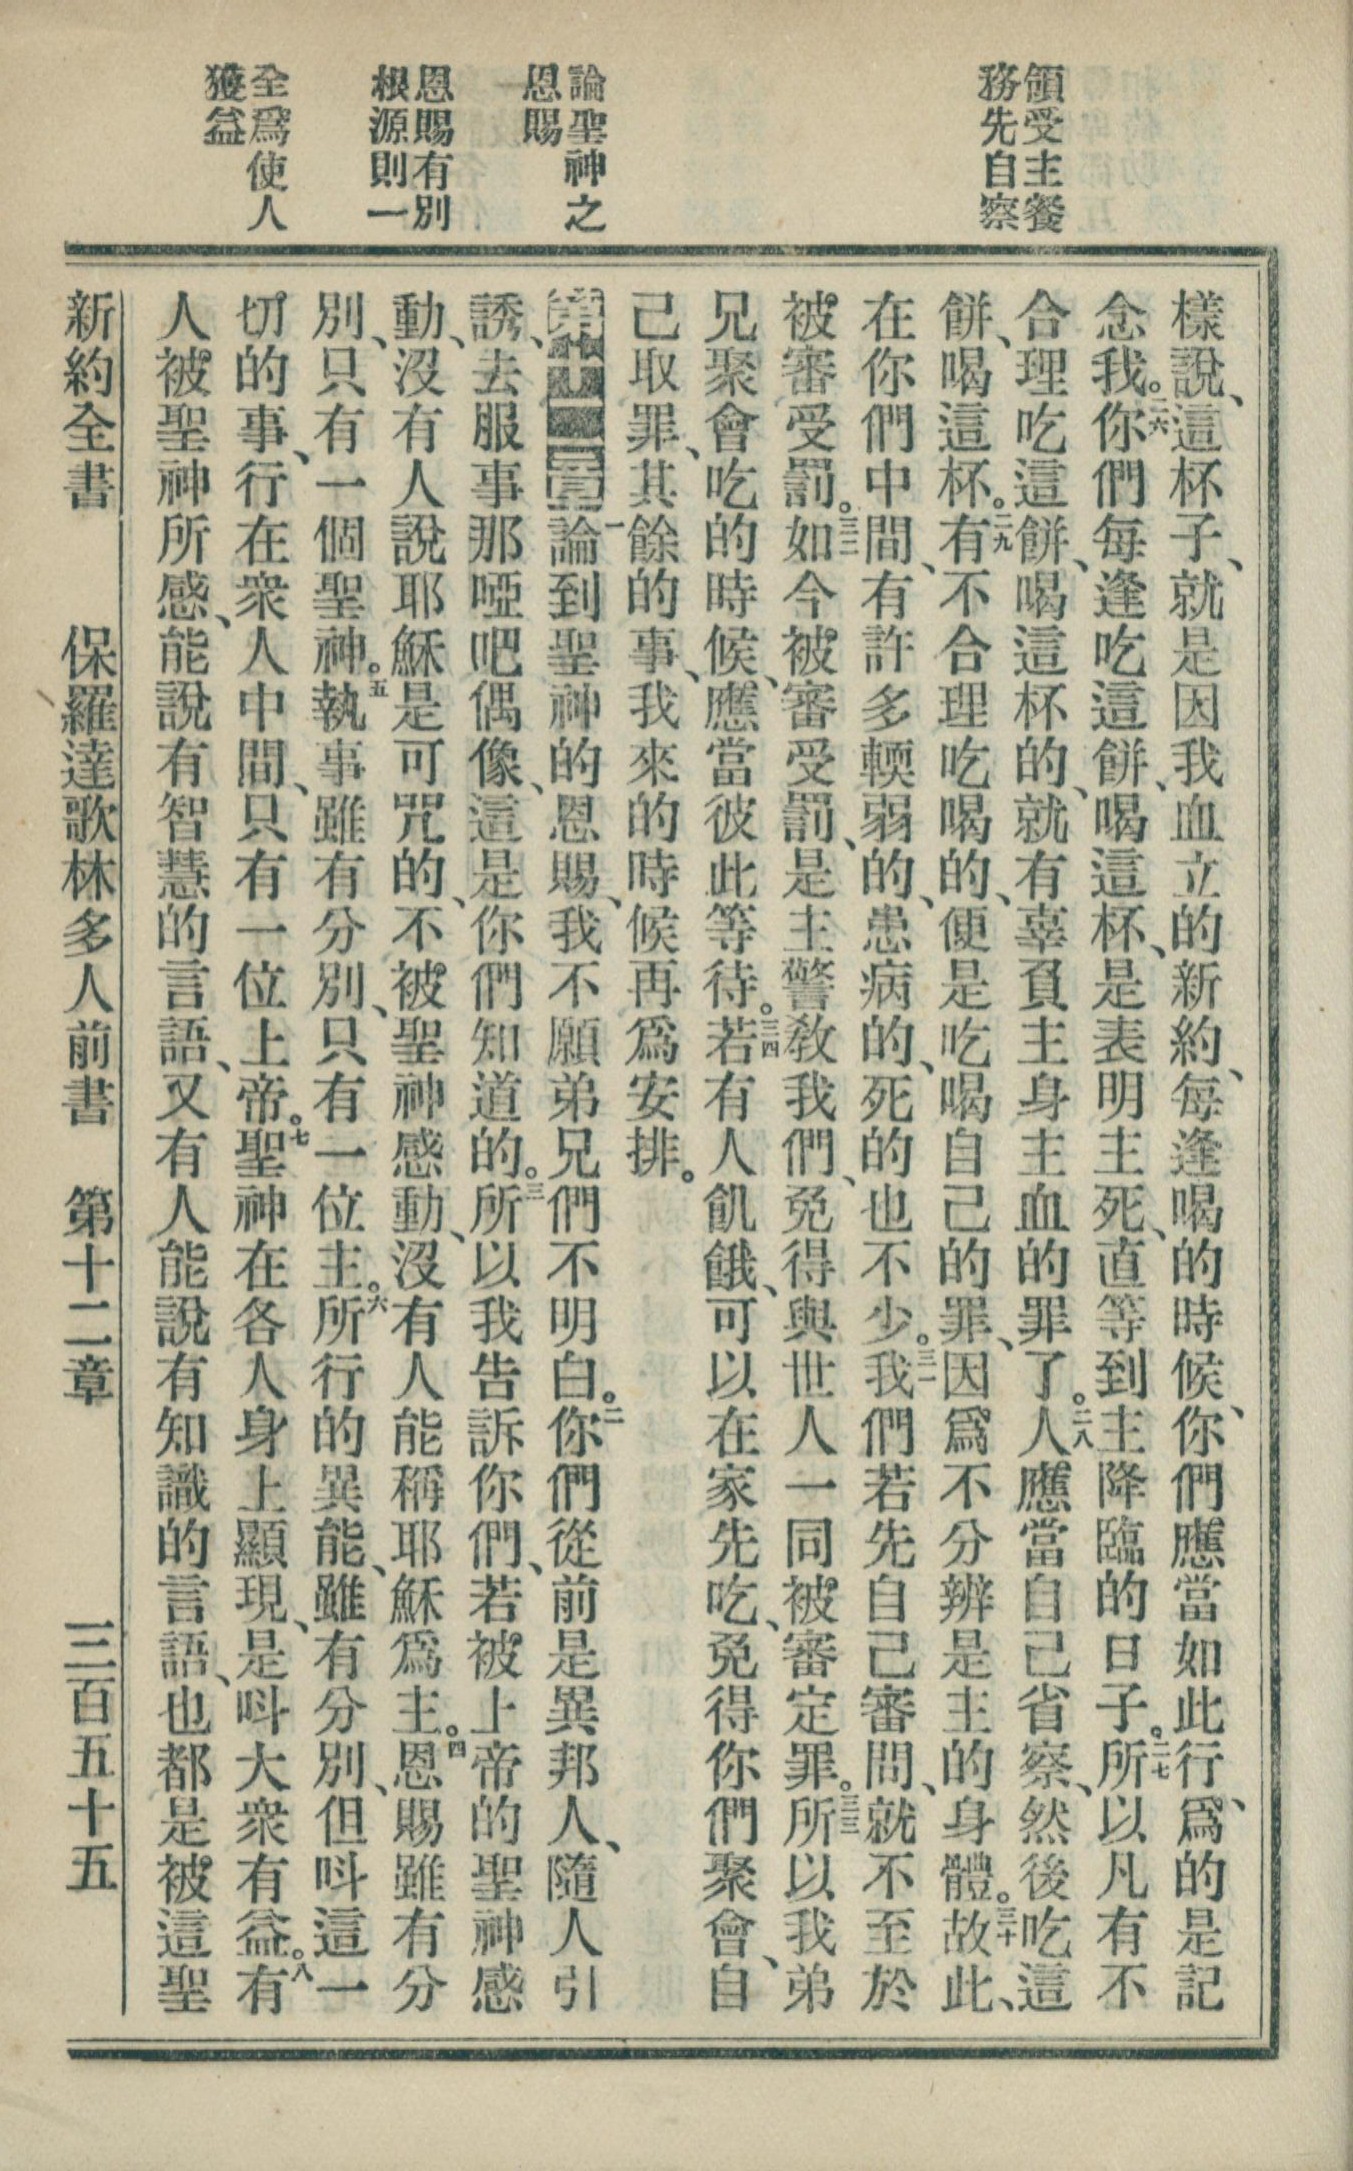 領受主餐
務先自察
論聖神之
恩賜
恩賜有別
根源則一
全爲使人
獲益
樣說、這杯子、就是因我血立的新約、每逢喝的時候、你們應當如此行、爲的是記
念我。二六你們每逢吃這餅、喝這杯、是表明主死、直等到主降臨的日子。二七所以凡有不
合理吃這餅、喝這杯的、就有辜負主身主血的罪了。二八人應當自己省察、然後吃這
餅、喝這杯。二九有不合理吃喝的、便是吃喝自己的罪、因爲不分辨是主的身體。三十故此、
在你們中間、有許多輭弱的、患病的、死的也不少。三一我們若先自己審問、就不至於
被審受罰。三二如今被審受罰、是主警敎我們、免得與世人一同被審定罪。三三所以我弟
兄聚會吃的時候、應當彼此等待。三四若有人飢餓、可以在家先吃、免得你們聚會、自
己取罪、其餘的事、我來的時候再爲安排。
第十二章一論到聖神的恩賜、我不願弟兄們不明白。二你們從前是異邦人、隨人引
誘、去服事那啞吧偶像、這是你們知道的。三所以我告訴你們、若被上帝的聖神感
動、沒有人說耶穌是可咒的、不被聖神感動、沒有人能稱耶穌爲主。四恩賜雖有分
別、只有一個聖神。五執事雖有分別、只有一位主。六所行的異能、雖有分別、但呌這一
切的事、行在衆人中間、只有一位上帝。七聖神在各人身上顯現、是呌大衆有益。八有
人被聖神所感、能說有智慧的言語、又有人能說有知識的言語、也都是被這聖
新約全書 保羅達歌林多人前書 第十二章 三百五十五